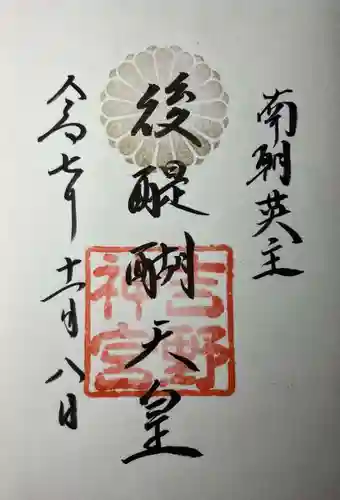 南朝英主
後醍醐天皇
吉野
神宮
令和七年十一月八日